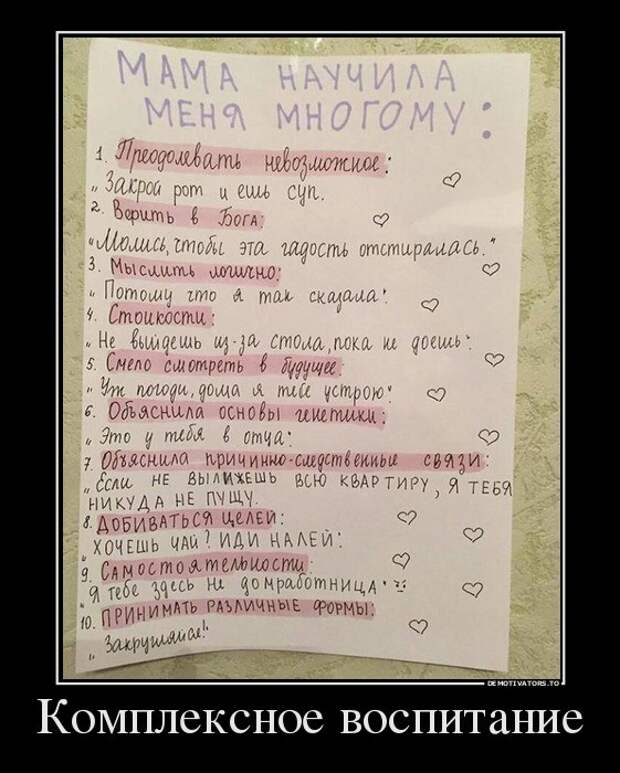 МАМА НАУЧИЛА
МЕНЯ МНОГОМУ:
1. Преодолевать невозможное:
„Закрой рот и ешь суп.
2. Верить в Бога:
"Молись, чтобы эта гадость отстиралась."
3. Мыслить логично:
„Потому что я так сказала"
4. Стойкости:
„Не выйдешь из-за стола, пока не доешь"
5. Смело смотреть в будущее:
„Уж погоди, дома я тебе устрою"
6. Объяснила основы генетики:
„Это у тебя в отца"
7. Объяснила причинно-следственные связи:
„Если не вылижешь всю квартиру, я тебя
никуда не пущу.
8. Добиваться целей:
„Хочешь чай? Иди налей"
9. Самостоятельности:
„Я тебе здесь не домработница"
10. Принимать различные формы:
„Закругляйся!"
DEMOTIVATORS.TO
Комплексное воспитание